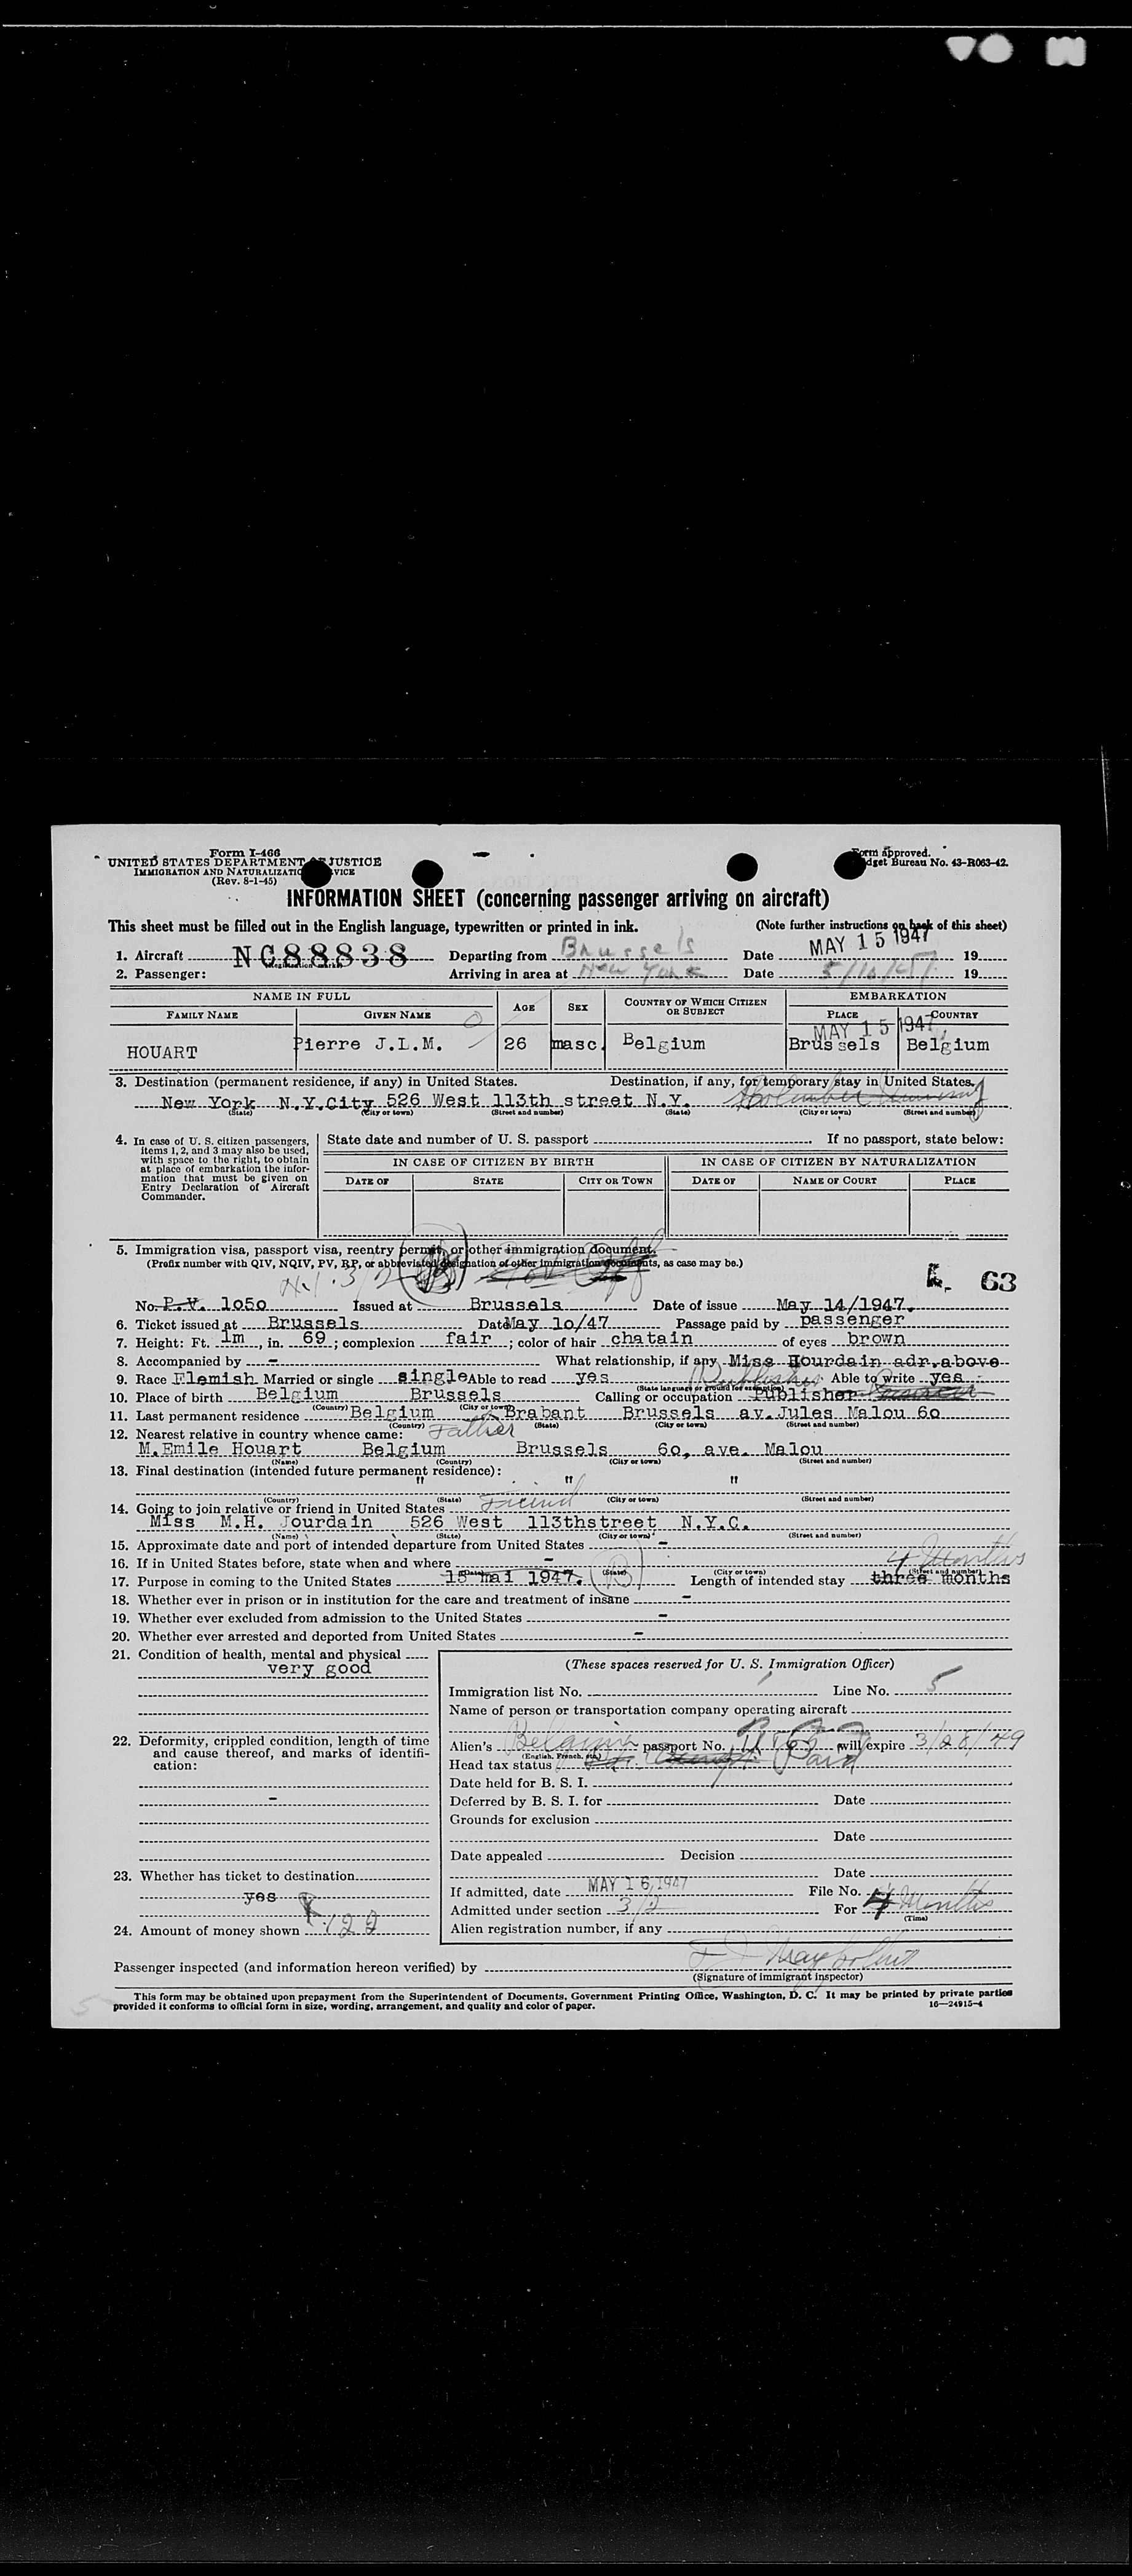 Form I-466
UNITED STATES DEPARTMENT OF JUSTICE
IMMIGRATION AND NATURALIZATION SERVICE
(Rev. 8-1-45)
Form approved.
Budget Bureau No. 43-R063-42.
INFORMATION SHEET (concerning passenger arriving on aircraft)
This sheet must be filled out in the English language, typewritten or printed in ink.
(Note further instructions on back of this sheet)
1. Aircraft NC88838 Departing from Brussels Date MAY 15 1947 19
(Registration marks)
2. Passenger: Arriving in area at New York Date 19
NAME IN FULL AGE SEX COUNTRY OF WHICH CITIZEN OR SUBJECT EMBARKATION
FAMILY NAME GIVEN NAME PLACE COUNTRY
MAY 15 1947
HOUART Pierre J.L.M. 26 masc. Belgium Brussels Belgium
3. Destination (permanent residence, if any) in United States. Destination, if any, for temporary stay in United States.
New York N.Y.City 526 West 113th street N.Y.
(State) (City or town) (Street and number) (State) (City or town) (Street and number)
4. In case of U. S. citizen passengers, items 1, 2, and 3 may also be used, with space to the right, to obtain at place of embarkation the information that must be given on Entry Declaration of Aircraft Commander.
State date and number of U. S. passport If no passport, state below:
IN CASE OF CITIZEN BY BIRTH IN CASE OF CITIZEN BY NATURALIZATION
DATE OF STATE CITY OR TOWN DATE OF NAME OF COURT PLACE
5. Immigration visa, passport visa, reentry permit, or other immigration document.
(Prefix number with QIV, NQIV, PV, RP, or abbreviated designation of other immigration documents, as case may be.)
63
No. P.V. 1050 Issued at Brussels Date of issue May 14/1947.
6. Ticket issued at Brussels Date May 10/47 Passage paid by passenger
7. Height: Ft. 1m, in. 69; complexion fair; color of hair chatain of eyes brown
8. Accompanied by - What relationship, if any Miss Hourdain adr.above
9. Race Flemish Married or single single Able to read yes Publisher Able to write yes
(State language or ground for exemption)
10. Place of birth Belgium Brussels Calling or occupation Publisher
(Country) (City or town)
11. Last permanent residence Belgium Brabant Brussels av.Jules Malou 60
(Country) (State) (City or town) (Street and number)
12. Nearest relative in country whence came: Father
M.Emile Houart Belgium Brussels 60, ave. Malou
(Name) (Country) (City or town) (Street and number)
13. Final destination (intended future permanent residence):
" " "
(Country) (State) (City or town) (Street and number)
14. Going to join relative or friend in United States Friend
Miss M.H. Jourdain 526 West 113thstreet N.Y.C.
(Name) (State) (City or town) (Street and number)
15. Approximate date and port of intended departure from United States -
16. If in United States before, state when and where -
(Date) (State) (City or town) (Street and number)
4 Months
17. Purpose in coming to the United States 15 mai 1947. B Length of intended stay three months
18. Whether ever in prison or in institution for the care and treatment of insane -
19. Whether ever excluded from admission to the United States -
20. Whether ever arrested and deported from United States -
21. Condition of health, mental and physical
very good
22. Deformity, crippled condition, length of time and cause thereof, and marks of identification:
-
23. Whether has ticket to destination
yes
24. Amount of money shown 122
(These spaces reserved for U. S. Immigration Officer)
Immigration list No. Line No. 5
Name of person or transportation company operating aircraft
Alien's Belgian passport No. will expire 3/28/49
(English, French, etc.)
Head tax status Paid
Date held for B. S. I.
Deferred by B. S. I. for Date
Grounds for exclusion
Date
Date appealed Decision
Date
If admitted, date MAY 16 1947 File No.
Admitted under section 3/2 For 4 Months
(Time)
Alien registration number, if any
Passenger inspected (and information hereon verified) by
(Signature of immigrant inspector)
This form may be obtained upon prepayment from the Superintendent of Documents, Government Printing Office, Washington, D. C. It may be printed by private parties
provided it conforms to official form in size, wording, arrangement, and quality and color of paper.
16—24915-4